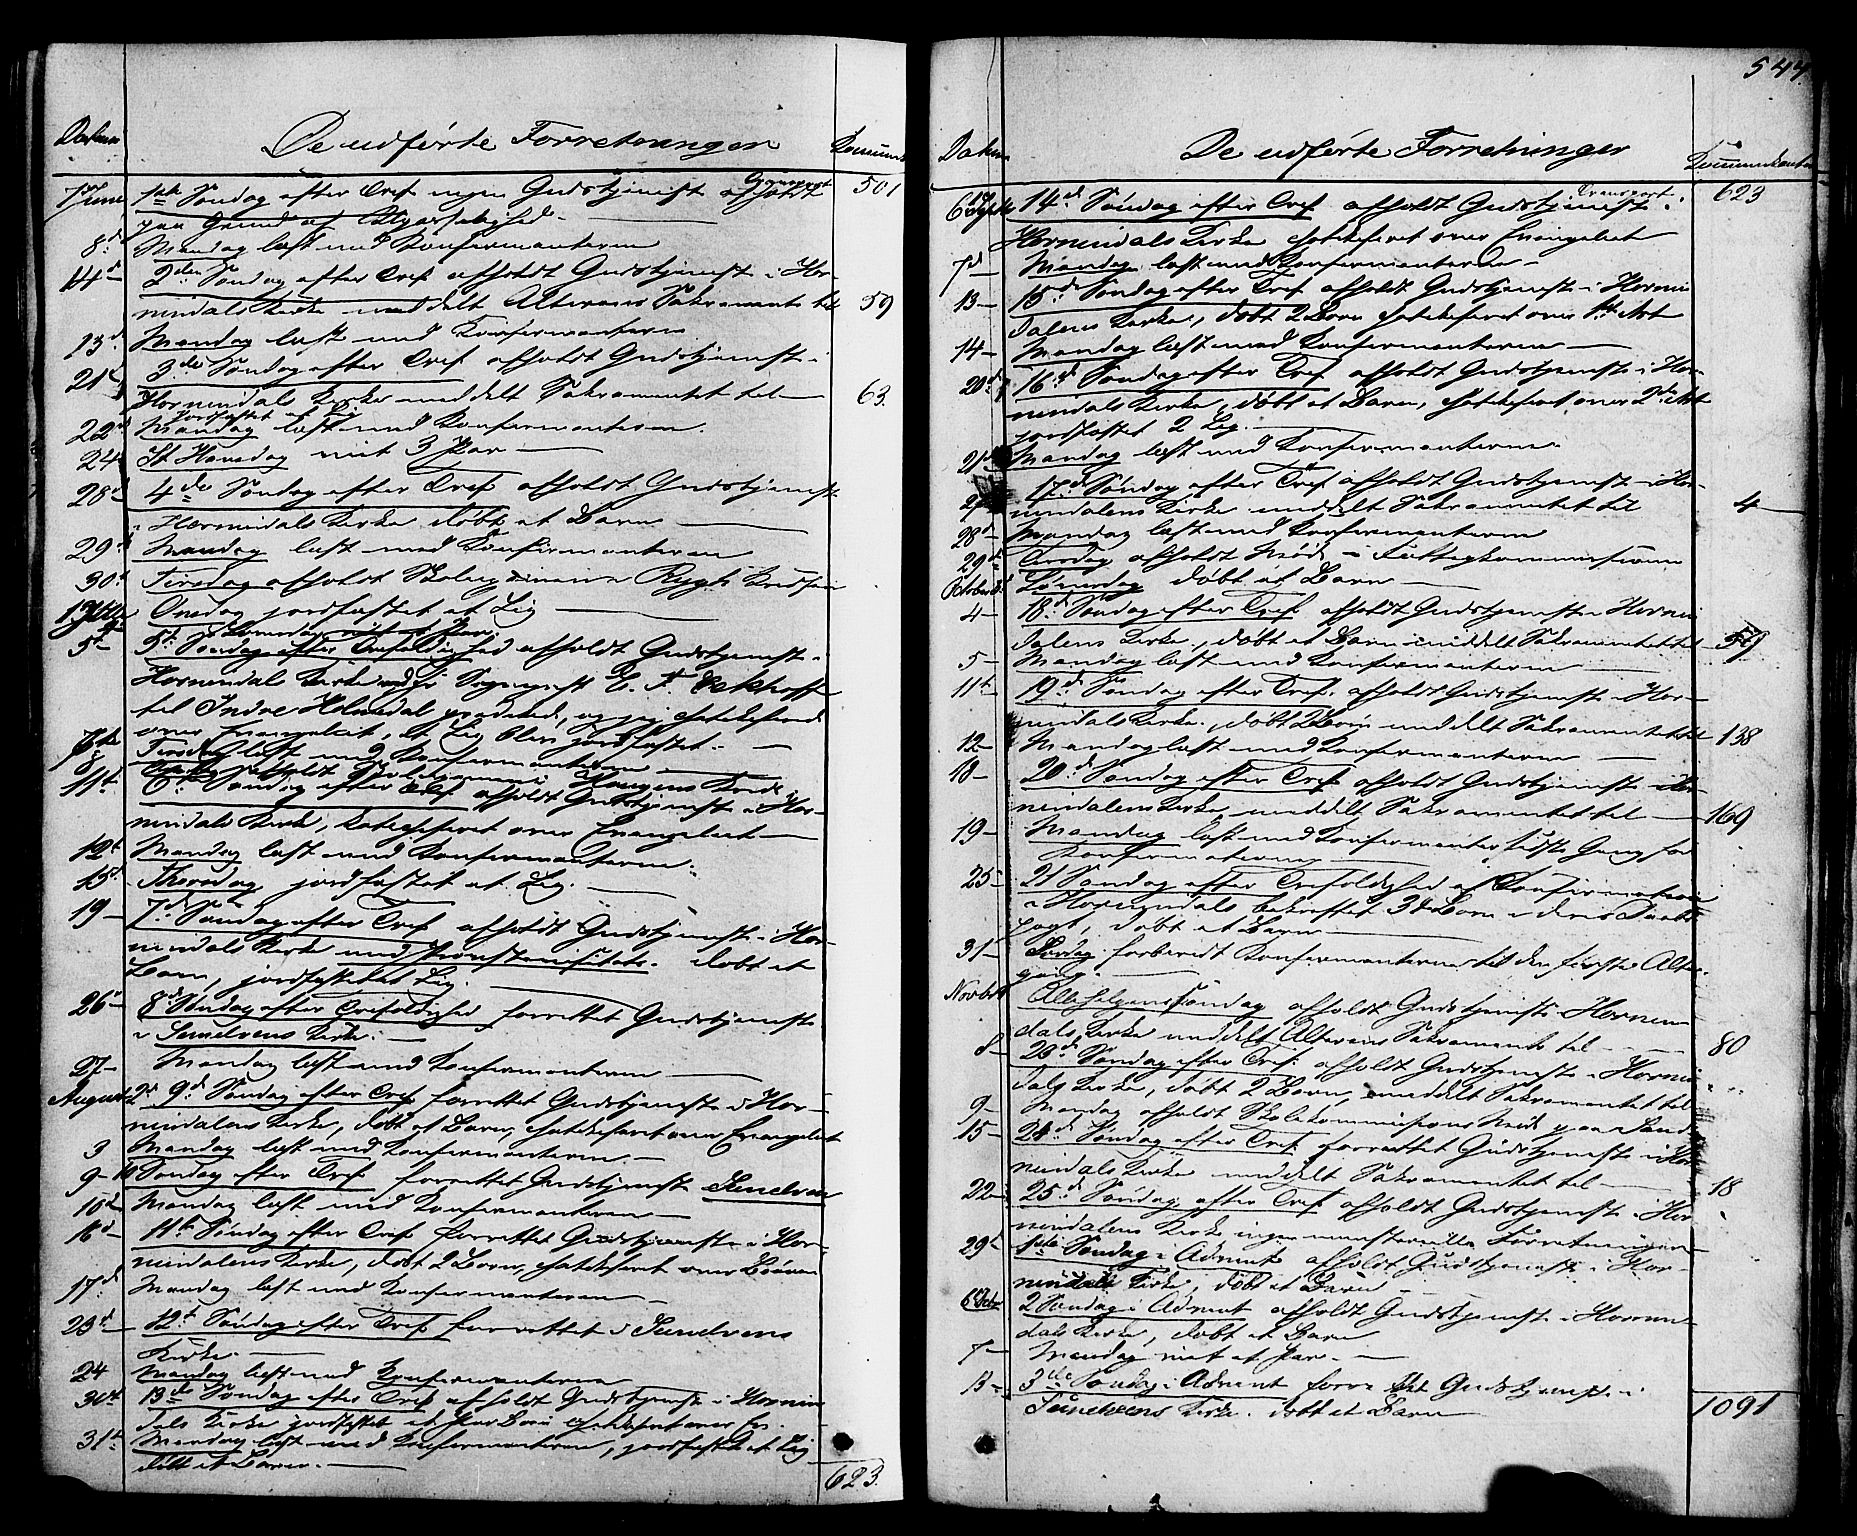 Datum De udførte Forretninger
7 Juni 1ste Søndag efter Tref ingen Gudstjenest afholdt Transport 501
paa Grund af Upasselighed. —
8d Mandag læst med Konfirmanterne
14d 2den Søndag efter Tref. afholdt Gudstjenest i Hor-
nindals Kirke meddelt Alterens Sakramente til 59
Mandag læst med Konfirmanterne
21 3die Søndag efter Tref. afholdt Gudstjenest i
Hornindals Kirke meddelt Sakramentet til — 63.
jordfæstet et Lig
22d Mandag læst med Konfirmanterne.
24 St Hansdag viet 3 Par —
28d 4de Søndag efter Tref afholdt Gudstjenest
i Hornindals Kirke døbt et Barn —
29d Mandag læst med Konfirmanterne
30t Tirsdag afholdt
1 Onsdag jordfæstet et Lig —
5t 5t Søndag efter Trefoldighed afholdt Gudstjenest i
Hornindals Kirke
til Indre Holmedal prædiked, og jeg katekiserede
over Evangeliet, et Lig blev jordfæstet. —
Tirsdag læst med Konfirmanterne
11t 6te Søndag efter Tref afholdt Gudstjenest i Hor-
nindals Kirke, katechiseret over Evangeliet —
12t Mandag læst med Konfirmanterne.
15t Thorsdag jordfæstet et Lig. —
19 — 7d Søndag efter Tref afholdt Gudstjenest i Hor-
nindals Kirke med Provstevisitats. døbt et
Barn, jordfæstet et Lig. —
26 — 8d Søndag efter Trefoldighed forrettet Gudstjenest
i Sunelvens Kirke. —
27 — Mandag læst med Konfirmanterne —
August 2d 9d Søndag efter Tref forrettet Gudstjenest i Hor-
nindalens Kirke, døbt et Barn, katekiseret over Evangeliet
3 Mandag læst med Konfirmanterne. —
9 — 10 Søndag efter Tref. forrettet Gudstjenest Sunelven
10de Mandag læst med Konfirmanterne —
16d — 11te Søndag efter Tref forrettet Gudstjenest i Hor-
nindalens Kirke, døbt 2 Børn, katekiseret over
17d Mandag læst med Konfirmanterne —
23d — 12t Søndag efter Tref. forrettet i Sunelvens
Kirke. —
24 Mandag læst med Konfirmanterne
30t 13de Søndag efter Tref afholdt Gudstjenest i Hornin
dals Kirke jordfæstet et
31t Mandag læst med Konfirmanterne, jordfæstet et Lig
døbt et Barn. — 623.
544
Datum De udførte Forretninger Kommunikanter
6 14d Søndag efter Tref afholdt Gudstjenest i Transport 623
Hornindals Kirke katekiseret over Evangeliet
7d — Mandag læst med Konfirmanterne —
13 — 15d Søndag efter Tref afholdt Gudstjenest i Hornin
dalens Kirke, døbt 2 Børn katekiseret over 1ste Art
14 — Mandag læst med Konfirmanterne —
20d 16d Søndag efter Tref afholdt Gudstjenest i Hor-
nindals Kirke, døbt et Barn, katekiseret over 2den Art
jordfæstet 2 Lig. —
21 Mandag læst med Konfirmanterne.
27 17d Søndag efter Tref afholdt Gudstjenest i Hor-
nindalens Kirke meddelt Sakramentet til 4 —
28d Mandag læst med Konfirmanterne
29d Tirsdag afholdt Møde i Fattigkommissionen
October 3 Lørverdag døbt et Barn —
4 — 18d Søndag efter Tref afholdt Gudstjenest i Hornin
dalens Kirke, døbt et Barn meddelt Sakramentet til 59
5 — Mandag læst med Konfirmanterne —
11t — 19d Søndag efter Tref. afholdt Gudstjenest i Hor-
nindals Kirke, døbt 2 Børn meddelt Sakramentet til 138
12 — Mandag læst med Konfirmanterne —
18 — 20d Søndag efter Tref afholdt Gudstjenest i Hor
nindalens Kirke, meddelt Sakramentet til — 169
19 — Mandag læst med Konfirmanter sidste Gang for
Konfirmationen —
25 — 21 Søndag efter Trefoldighed af Konfirmation
i Hornindals bekræftet Børn i deres Daabs
pagt, døbt et Barn —
31t Lørdag forberedt Konfirmanterne til den første Alter
gang. —
Novbr 1 Allehelgens Søndag afholdt Gudstjenest i Hornin
dals Kirke meddelt Alterens Sakramente til — 80
8 — 23d Søndag efter Tref. afholdt Gudstjenest i Hornin
dals Kirke, døbt 2 Børn, meddelt Sakramentet til
9 — Mandag afholdt Skolekommissions Møde paa
15 — 24d Søndag efter Tref forrettet Gudstjenest i Hor
nindals Kirke meddelt Sakramentet til — 18
22 — 25d Søndag efter Tref afholdt Gudstjenest i Hor
nindalens Kirke ingen ministerielle Forretninger
29t 1ste Søndag i Advent afholdt Gudstjenest i Hor-
nindals Kirke, døbt et Barn —
6 Decbr 2 Søndag i Advent afholdt Gudstjenest i Hornin
dals Kirke, døbt et Barn
7 — Mandag viet et Par. —
13 — 3die Søndag i Advent forrettet Gudstjenest i
Sunelvens Kirke. døbt et Barn 1091